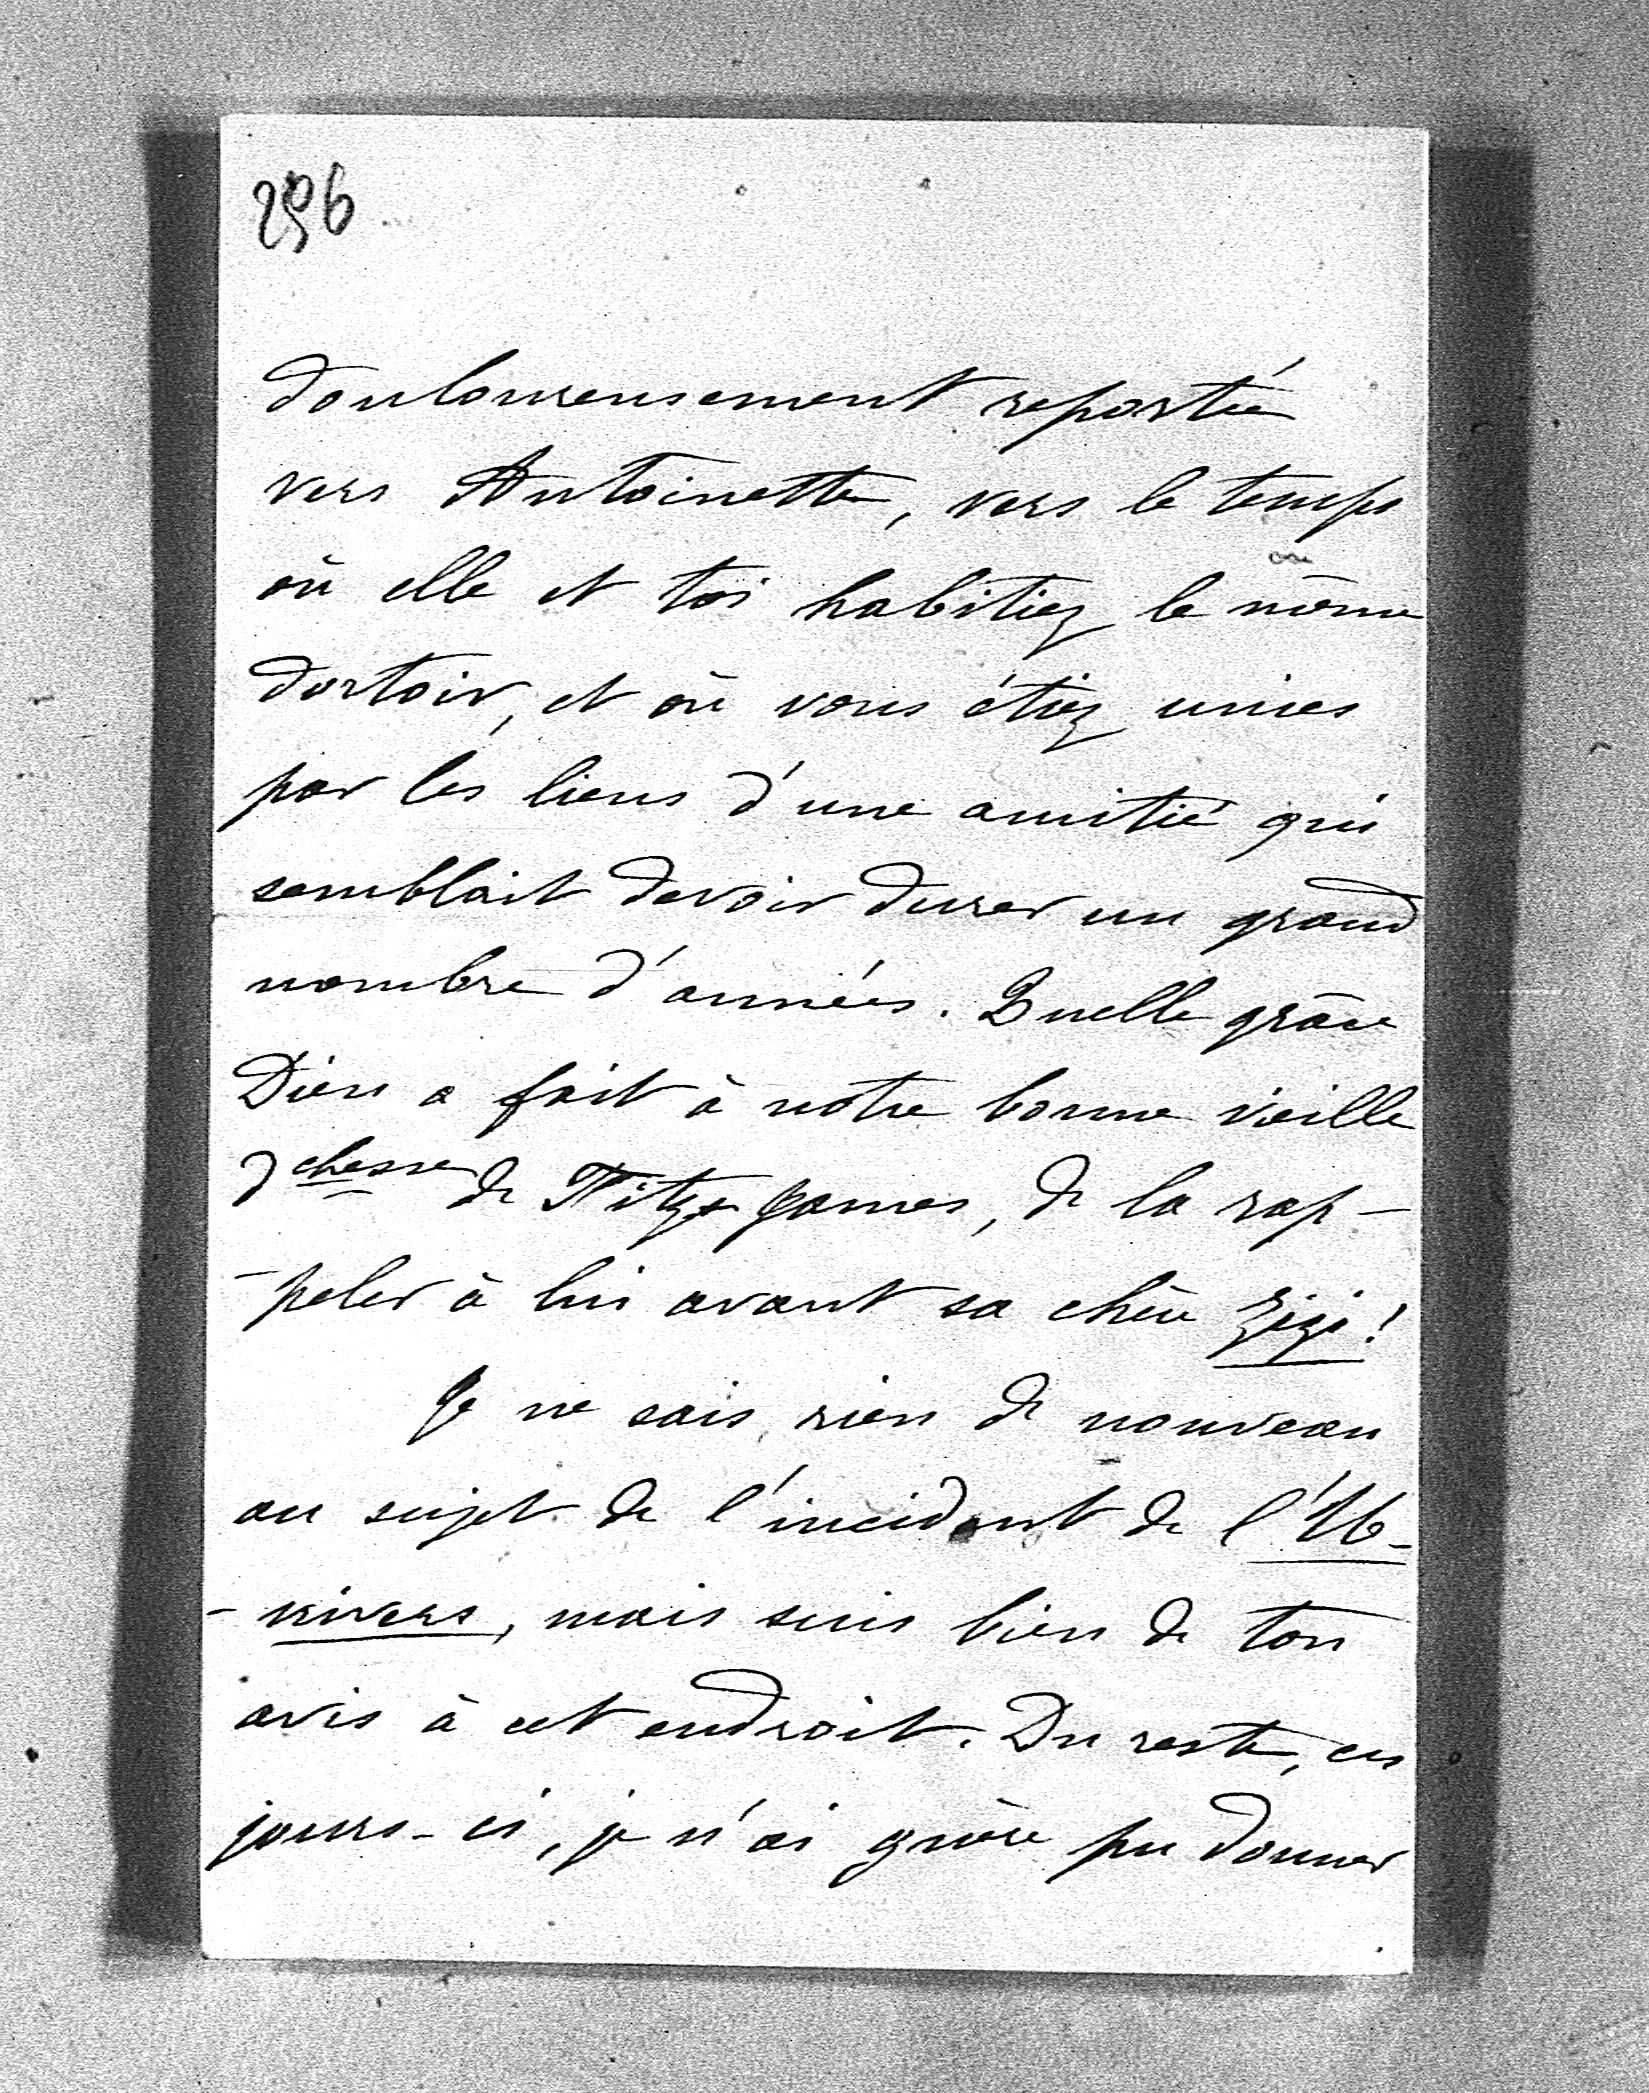 296
douloureusement reportée
vers Antoinette, vers le temps
où elle et toi habitiez le même
dortoir, et où vous étiez unies
par les liens d'une amitié qui
semblait devoir durer un grand
nombre d'années. Quelle grâce
Dieu a fait à notre bonne vieille
Dchesse de Fitz-James, de la rap-
-peler à lui avant sa chère Zizi!
Je ne sais rien de nouveau
au sujet de l'incident de l'U-
-nivers, mais suis bien de ton
avis à cet endroit. Du reste, ces
jours-ci, je n'ai guère pu donner